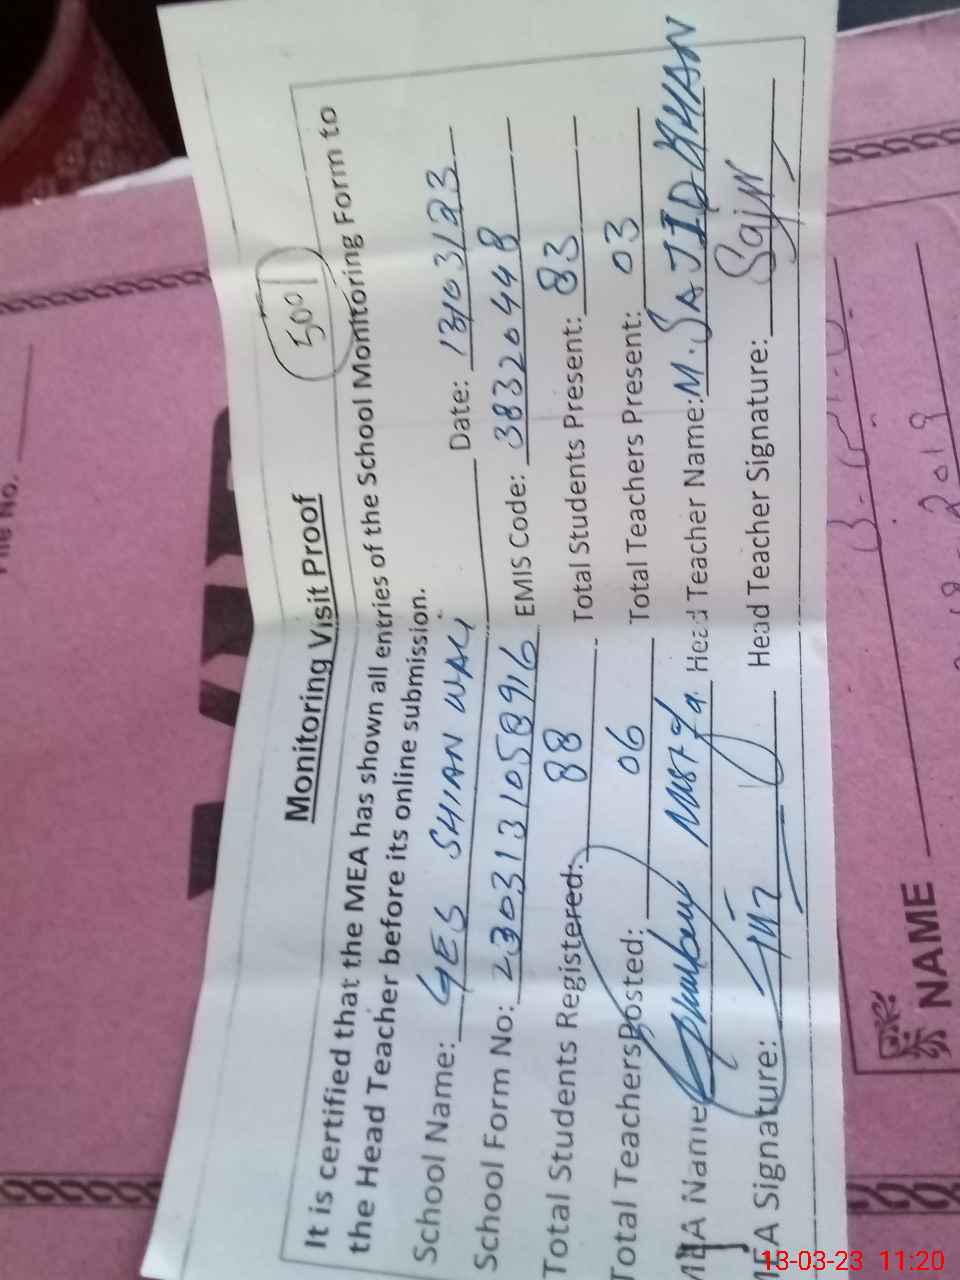 5001
Monitoring Visit Proof
It is certified that the MEA has shown all entries of the School Monitoring Form to
the Head Teacher before its online submission.
School Name: GES SHIAN WALI Date: 13/03/23
School Form No: 2303131058916 EMIS Code: 38320448
Total Students Registered: 88 Total Students Present: 83
Total Teachers Posted: 06 Total Teachers Present: 03
MEA Name Head Teacher Name: M. SAJID KHAN
MEA Signature: Head Teacher Signature: Sajid
File No.
NAME
2019
13-03-23 11:20